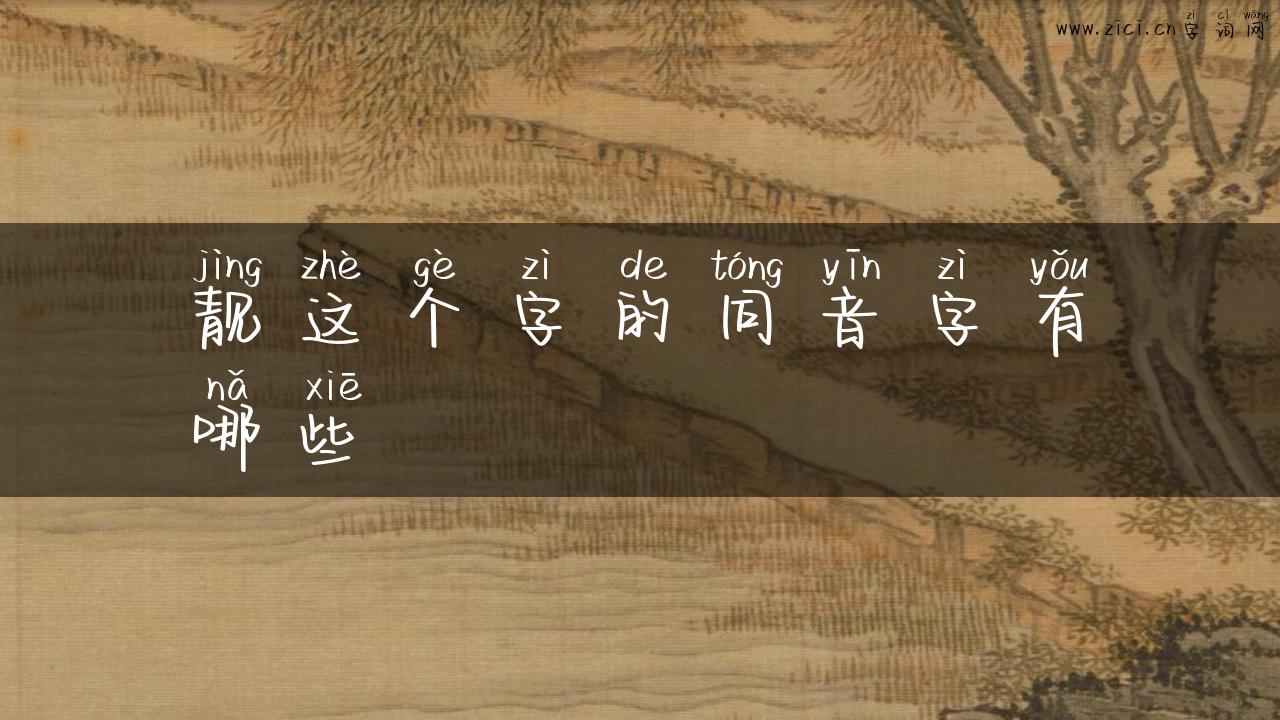 zì cí wǎng
www.zici.cn字词网
jìng zhè gè zì de tóng yīn zì yǒu
靓这个字的同音字有
nǎ xiē
哪些